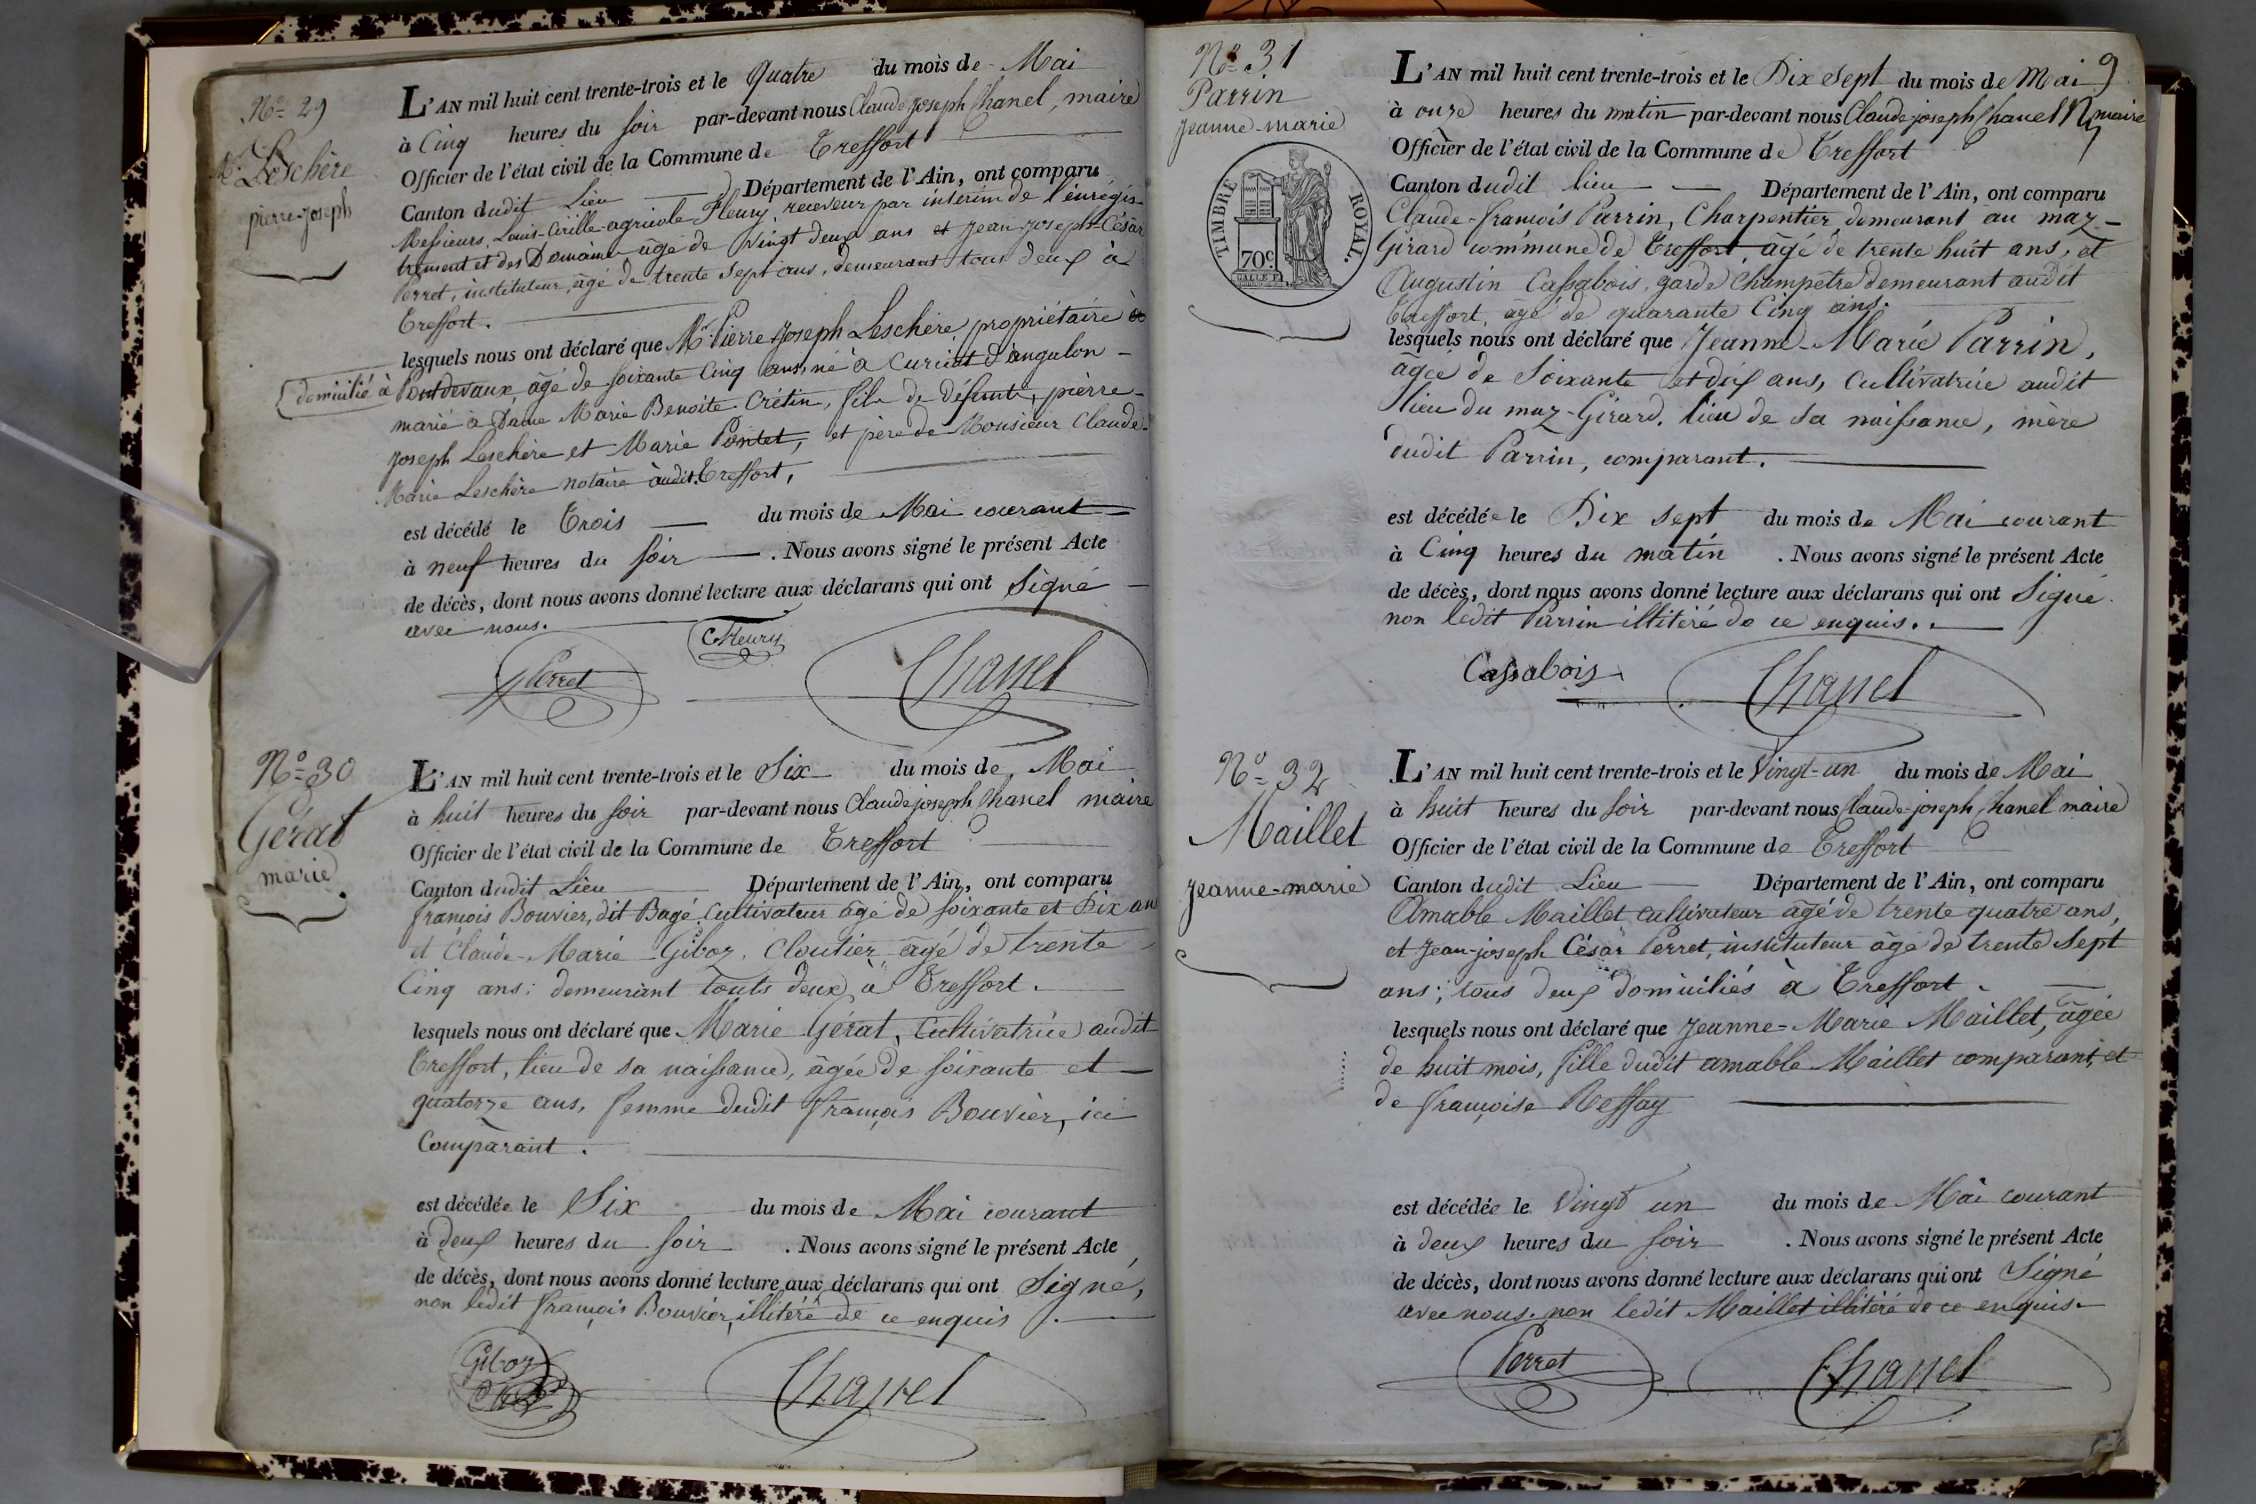 N° 29
Mr Leschère
pierre-joseph
L'AN mil huit cent trente-trois et le Quatre du mois de Mai
à Cinq heures du soir par-devant nous Claude joseph Chanel, maire
Officier de l'état civil de la Commune de Treffort
Canton dudit Lieu Département de l'Ain, ont comparu
Messieurs Louis-Cirille-agricole Fleury, receveur par intérim de l'enrégis-
trement et des Domaines âgé de vingt deux ans et Jean-joseph-César
Perret, instituteur, âgé de trente sept ans, demeurant tous deux à
Treffort.
lesquels nous ont déclaré que Mr Pierre Joseph Leschère, propriétaire et
domicilié à Pontdevaux, âgé de soixante Cinq ans, né à Curciat d'ongalon -
marié à Dame Marie Benoite Crétin, fils de défunts, pierre-
Joseph Leschère et Marie Pontet, et père de Monsieur Claude-
Marie Leschère notaire audit Treffort,
est décédé le Trois du mois de Mai courant
à neuf heures du soir . Nous avons signé le présent Acte
de décès, dont nous avons donné lecture aux déclarans qui ont Signé
avec nous.
Perret C Fleury Chanel
N° 30
Gérat
marie
L'AN mil huit cent trente-trois et le Six du mois de Mai
à huit heures du soir par-devant nous Claude joseph Chanel maire
Officier de l'état civil de la Commune de Treffort
Canton dudit Lieu Département de l'Ain, ont comparu
françois Bouvier, dit Bagé, Cultivateur âgé de soixante et Dix an
et Claude-Marie Giboz, Cloutier âgé de trente
Cinq ans; demeurant touts deux à Treffort.
lesquels nous ont déclaré que Marie Gérat, Cultivatrice audit
Treffort, lieu de sa naissance, âgée de soixante et
quatorze ans, femme dudit françois Bouvier, ici
Comparant.
est décédée le Six du mois de Mai courant
à deux heures du soir . Nous avons signé le présent Acte
de décès, dont nous avons donné lecture aux déclarans qui ont Signé,
non ledit françois Bouvier, illitéré de ce enquis.
Giboz Chanel
9
N° 31
Parrin
Jeanne-marie
TIMBRE ROYAL.
70c.
L'AN mil huit cent trente-trois et le Dix sept du mois de Mai
à onze heures du matin par-devant nous Claude joseph Chanel maire
Officier de l'état civil de la Commune de Treffort
Canton dudit lieu Département de l'Ain, ont comparu
Claude-françois Parrin, Charpentier demeurant au maz-
Girard commune de Treffort, âgé de trente huit ans, et
Augustin Cassabois, garde Champêtre demeurant audit
Treffort, âgé de quarante Cinq ans.
lesquels nous ont déclaré que Jeanne-Marie Parrin,
âgée de Soixante et dix ans, Cultivatrice audit
lieu du maz-Girard, lieu de sa naissance, mère
dudit Parrin, comparant.
est décédée le Dix sept du mois de Mai courant
à Cinq heures du matin . Nous avons signé le présent Acte
de décès, dont nous avons donné lecture aux déclarans qui ont Signé
non ledit Parrin illitéré de ce enquis.
Cassabois Chanel
N° 32
Maillet
Jeanne-marie
L'AN mil huit cent trente-trois et le Vingt-un du mois de Mai
à huit heures du soir par-devant nous Claude-joseph Chanel maire
Officier de l'état civil de la Commune de Treffort
Canton dudit Lieu Département de l'Ain, ont comparu
Amable Maillet cultivateur âgé de trente quatre ans,
et Jean-joseph César Perret, instituteur âgé de trente Sept
ans; tous deux domiciliés à Treffort.
lesquels nous ont déclaré que Jeanne-Marie Maillet, âgée
de huit mois, fille dudit amable Maillet comparant, et
de françoise Reffay
est décédée le Vingt un du mois de Mai courant
à deux heures du soir . Nous avons signé le présent Acte
de décès, dont nous avons donné lecture aux déclarans qui ont Signé
avec nous. non ledit Maillet illitéré de ce enquis.
Perret Chanel